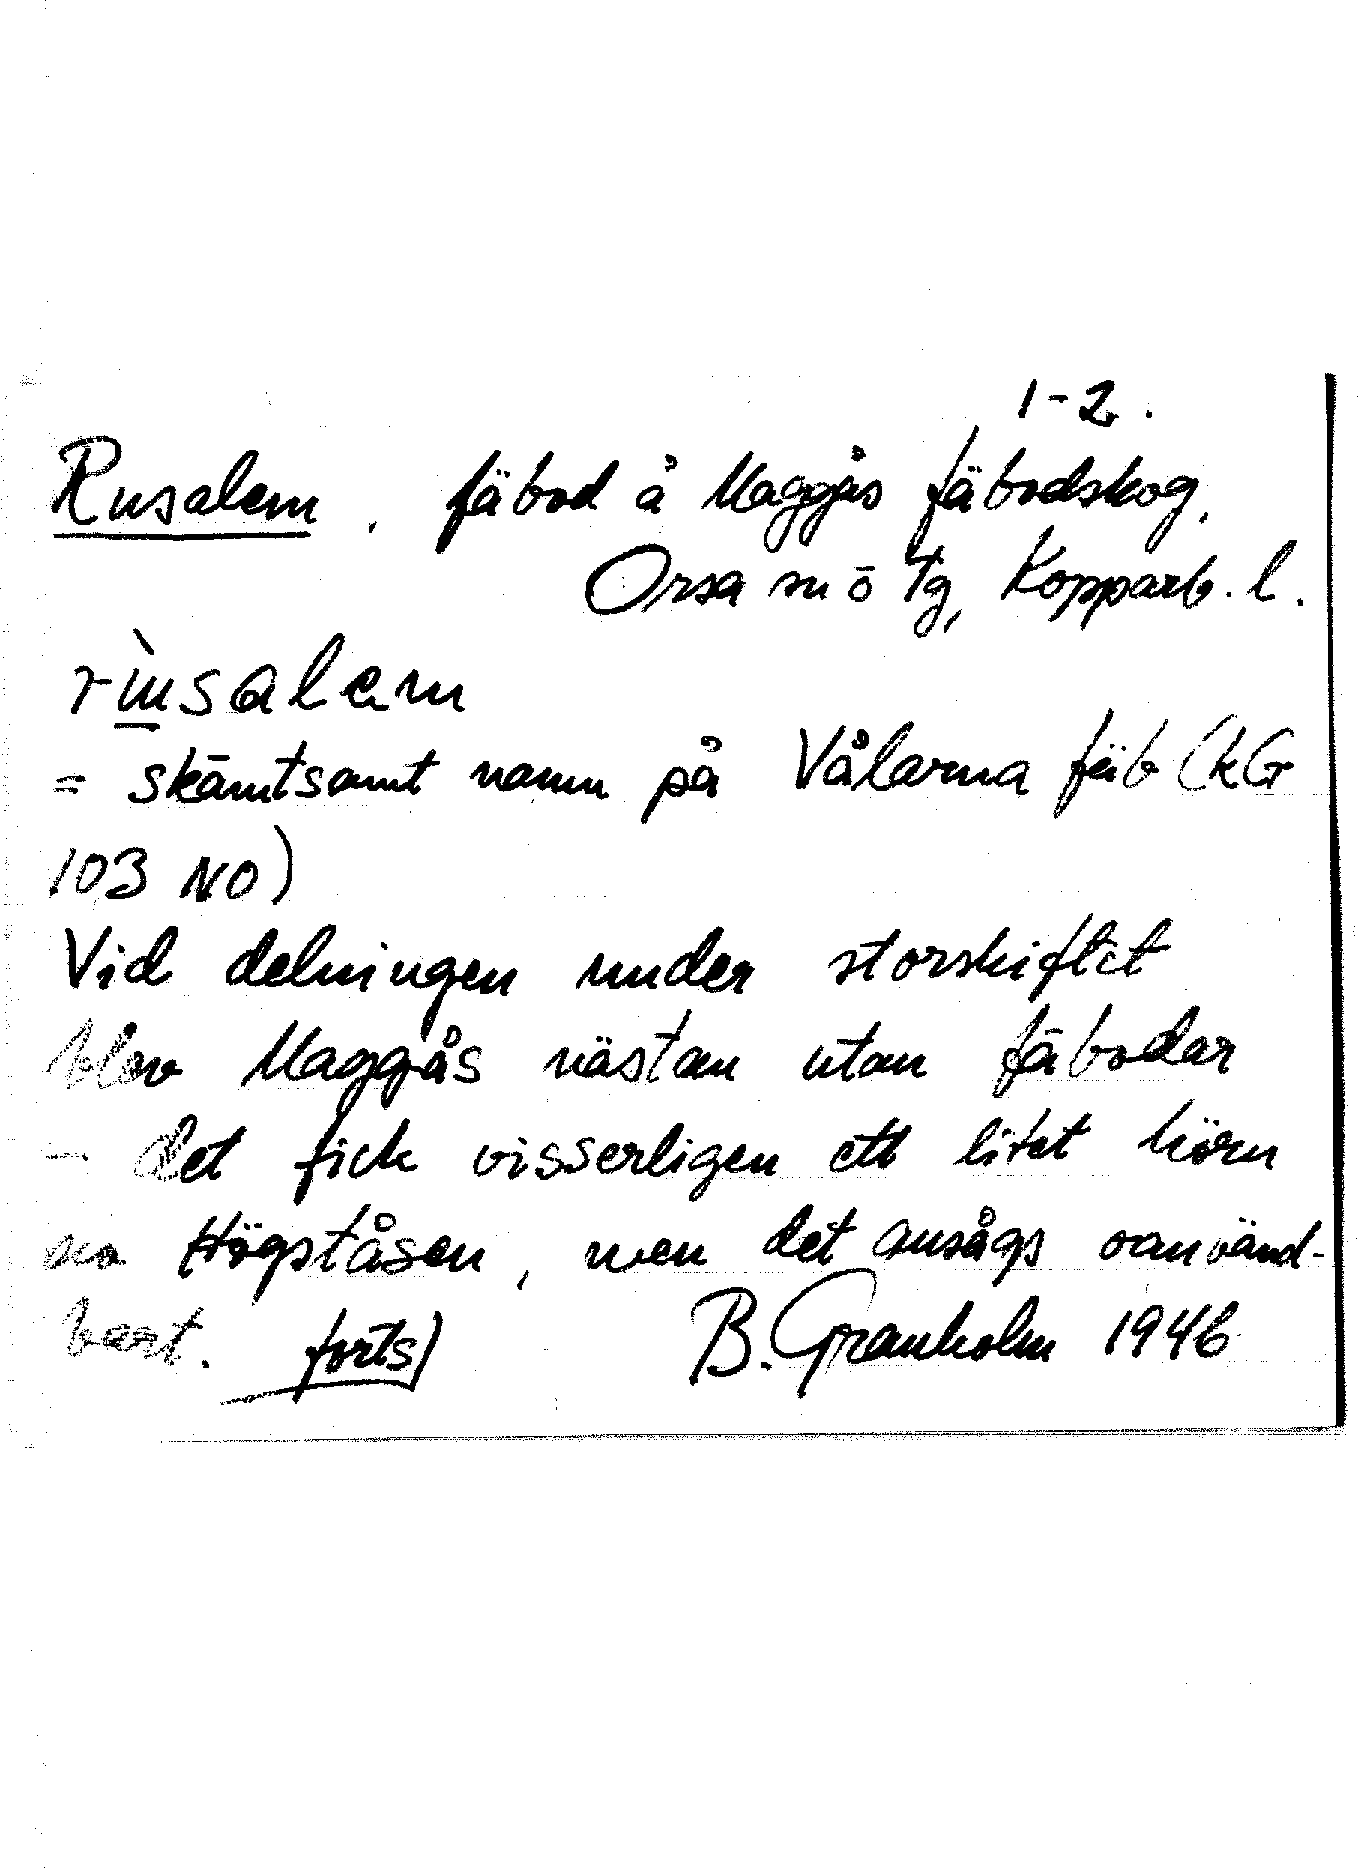 1-2.
Rusalem, fäbod å Maggås fäbodskog,
Orsa sn ö Tg, Kopparb. l.
rùsalem
= skämtsamt namn på Vålarna fäb (kG
103 NO)
Vid delningen under storskiftet
blev Maggås nästan utan fäbodar
- det fick visserligen ett litet hörn
Högståsen, men det ansågs oanvänd-
bart. forts) B. Granholm 1946